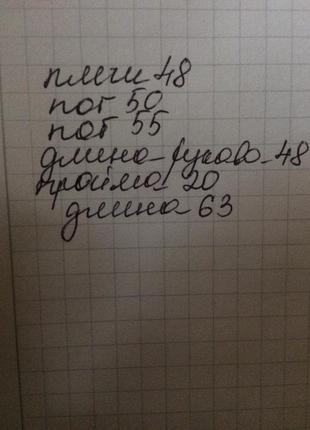 плечи 48
пог 50
поб 55
длина рукова 48
пройма 20
длина 63